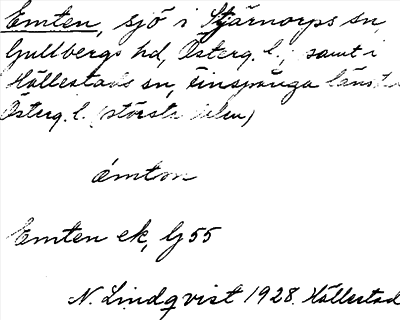 Emten, sjö i Stjärnorps sn,
Gullbergs hd, Österg. l.; samt i
Hällestads sn, Finspånga läns
Österg. l. (största delen)
èmton
Emten ek, G 55
N. Lindqvist 1928. Hällestad